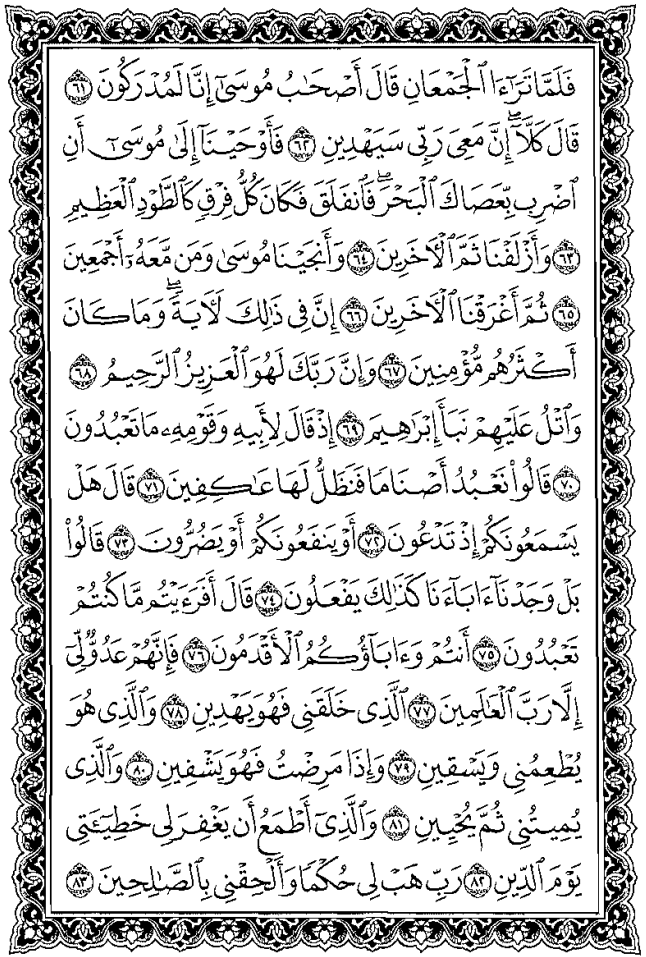 فَلَمَّا تَرَٰٓءَا ٱلْجَمْعَانِ قَالَ أَصْحَٰبُ مُوسَىٰٓ إِنَّا لَمُدْرَكُونَ ٦١
قَالَ كَلَّآ ۖ إِنَّ مَعِىَ رَبِّى سَيَهْدِينِ ٦٢ فَأَوْحَيْنَآ إِلَىٰ مُوسَىٰٓ أَنِ
ٱضْرِب بِّعَصَاكَ ٱلْبَحْرَ ۖ فَٱنفَلَقَ فَكَانَ كُلُّ فِرْقٍ كَٱلطَّوْدِ ٱلْعَظِيمِ
٦٣ وَأَزْلَفْنَا ثَمَّ ٱلْـَٔاخَرِينَ ٦٤ وَأَنجَيْنَا مُوسَىٰ وَمَن مَّعَهُۥٓ أَجْمَعِينَ
٦٥ ثُمَّ أَغْرَقْنَا ٱلْـَٔاخَرِينَ ٦٦ إِنَّ فِى ذَٰلِكَ لَـَٔايَةً ۖ وَمَا كَانَ
أَكْثَرُهُم مُّؤْمِنِينَ ٦٧ وَإِنَّ رَبَّكَ لَهُوَ ٱلْعَزِيزُ ٱلرَّحِيمُ ٦٨
وَٱتْلُ عَلَيْهِمْ نَبَأَ إِبْرَٰهِيمَ ٦٩ إِذْ قَالَ لِأَبِيهِ وَقَوْمِهِۦ مَا تَعْبُدُونَ
٧٠ قَالُوا۟ نَعْبُدُ أَصْنَامًا فَنَظَلُّ لَهَا عَٰكِفِينَ ٧١ قَالَ هَلْ
يَسْمَعُونَكُمْ إِذْ تَدْعُونَ ٧٢ أَوْ يَنفَعُونَكُمْ أَوْ يَضُرُّونَ ٧٣ قَالُوا۟
بَلْ وَجَدْنَآ ءَابَآءَنَا كَذَٰلِكَ يَفْعَلُونَ ٧٤ قَالَ أَفَرَءَيْتُم مَّا كُنتُمْ
تَعْبُدُونَ ٧٥ أَنتُمْ وَءَابَآؤُكُمُ ٱلْأَقْدَمُونَ ٧٦ فَإِنَّهُمْ عَدُوٌّ لِّىٓ
إِلَّا رَبَّ ٱلْعَٰلَمِينَ ٧٧ ٱلَّذِى خَلَقَنِى فَهُوَ يَهْدِينِ ٧٨ وَٱلَّذِى هُوَ
يُطْعِمُنِى وَيَسْقِينِ ٧٩ وَإِذَا مَرِضْتُ فَهُوَ يَشْفِينِ ٨٠ وَٱلَّذِى
يُمِيتُنِى ثُمَّ يُحْيِينِ ٨١ وَٱلَّذِىٓ أَطْمَعُ أَن يَغْفِرَ لِى خَطِيٓـَٔتِى
يَوْمَ ٱلدِّينِ ٨٢ رَبِّ هَبْ لِى حُكْمًا وَأَلْحِقْنِى بِٱلصَّٰلِحِينَ ٨٣